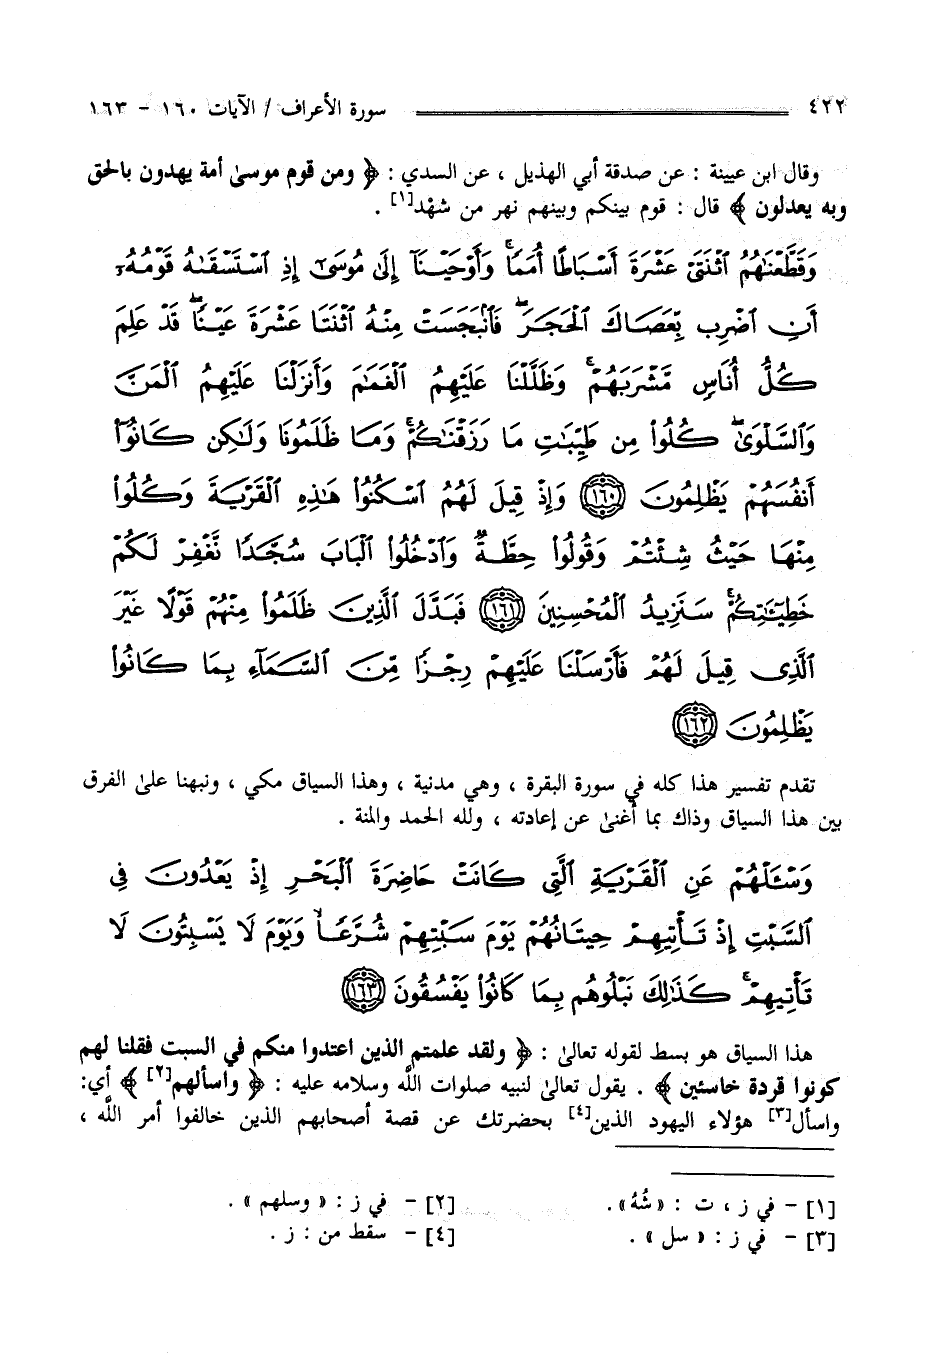 ٤٢٢ سورة الأعراف / الآيات ١٦٠ - ١٦٣
وقال ابن عيينة : عن صدقة أبي الهذيل ، عن السدي : ﴿ ومن قوم موسىٰ أمة يهدون بالحق
وبه يعدلون ﴾ قال : قوم بينكم وبينهم نهر من شهْد[١] .
وَقَطَّعْنَٰهُمُ ٱثْنَتَىْ عَشْرَةَ أَسْبَاطًا أُمَمًا ۚ وَأَوْحَيْنَآ إِلَىٰ مُوسَىٰٓ إِذِ ٱسْتَسْقَىٰهُ قَوْمُهُۥٓ
أَنِ ٱضْرِب بِّعَصَاكَ ٱلْحَجَرَ ۖ فَٱنۢبَجَسَتْ مِنْهُ ٱثْنَتَا عَشْرَةَ عَيْنًا ۖ قَدْ عَلِمَ
كُلُّ أُنَاسٍ مَّشْرَبَهُمْ ۚ وَظَلَّلْنَا عَلَيْهِمُ ٱلْغَمَٰمَ وَأَنزَلْنَا عَلَيْهِمُ ٱلْمَنَّ
وَٱلسَّلْوَىٰ ۖ كُلُوا۟ مِن طَيِّبَٰتِ مَا رَزَقْنَٰكُمْ ۚ وَمَا ظَلَمُونَا وَلَٰكِن كَانُوٓا۟
أَنفُسَهُمْ يَظْلِمُونَ ﴿١٦٠﴾ وَإِذْ قِيلَ لَهُمُ ٱسْكُنُوا۟ هَٰذِهِ ٱلْقَرْيَةَ وَكُلُوا۟
مِنْهَا حَيْثُ شِئْتُمْ وَقُولُوا۟ حِطَّةٌ وَٱدْخُلُوا۟ ٱلْبَابَ سُجَّدًا نَّغْفِرْ لَكُمْ
خَطِيٓـَٰٔتِكُمْ ۚ سَنَزِيدُ ٱلْمُحْسِنِينَ ﴿١٦١﴾ فَبَدَّلَ ٱلَّذِينَ ظَلَمُوا۟ مِنْهُمْ قَوْلًا غَيْرَ
ٱلَّذِى قِيلَ لَهُمْ فَأَرْسَلْنَا عَلَيْهِمْ رِجْزًا مِّنَ ٱلسَّمَآءِ بِمَا كَانُوا۟
يَظْلِمُونَ ﴿١٦٢﴾
تقدم تفسير هذا كله في سورة البقرة ، وهي مدنية ، وهذا السياق مكي ، ونبهنا علىٰ الفرق
بين هذا السياق وذاك بما أغنىٰ عن إعادته ، ولله الحمد والمنة .
وَسْـَٔلْهُمْ عَنِ ٱلْقَرْيَةِ ٱلَّتِى كَانَتْ حَاضِرَةَ ٱلْبَحْرِ إِذْ يَعْدُونَ فِى
ٱلسَّبْتِ إِذْ تَأْتِيهِمْ حِيتَانُهُمْ يَوْمَ سَبْتِهِمْ شُرَّعًا وَيَوْمَ لَا يَسْبِتُونَ لَا
تَأْتِيهِمْ ۚ كَذَٰلِكَ نَبْلُوهُم بِمَا كَانُوا۟ يَفْسُقُونَ ﴿١٦٣﴾
هذا السياق هو بسط لقوله تعالىٰ : ﴿ ولقد علمتم الذين اعتدوا منكم في السبت فقلنا لهم
كونوا قردة خاسئين ﴾ . يقول تعالىٰ لنبيه صلوات اللَّه وسلامه عليه : ﴿ واسألهم[٢] ﴾ أي:
واسأل[٣] هؤلاء اليهود الذين[٤] بحضرتك عن قصة أصحابهم الذين خالفوا أمر اللَّه ،
[١] - في ز ، ت : « شُهُ» . [٢] - في ز : « وسلهم » .
[٣] - في ز : « سل » . [٤] - سقط من : ز .